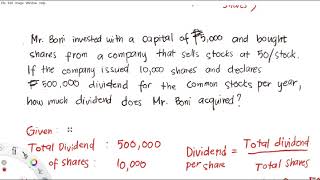 shares)
Mr. Boni invested with a capital of ₱5,000 and bought
shares from a company that sells stocks at 50/stock.
If the company issued 10,000 shares and declares
₱500,000 dividend for the common stocks per year,
how much dividend does Mr. Boni acquired?
Given :
Total Dividend : 500,000
of shares : 10,000
Dividend per share = Total dividend / Total shares